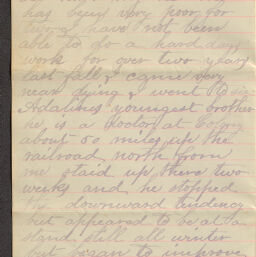 has been very poor for
two & have not been
able to do a hard days
work for over two years
last fall & came very
near dying & went to see
Adalines youngest brother
he is a doctor at
about 50 miles up the
railroad north from
me staid up there two
weeks and he stopped
the downward tendency
but appeared to be at a
stand still all winter
but began to improve